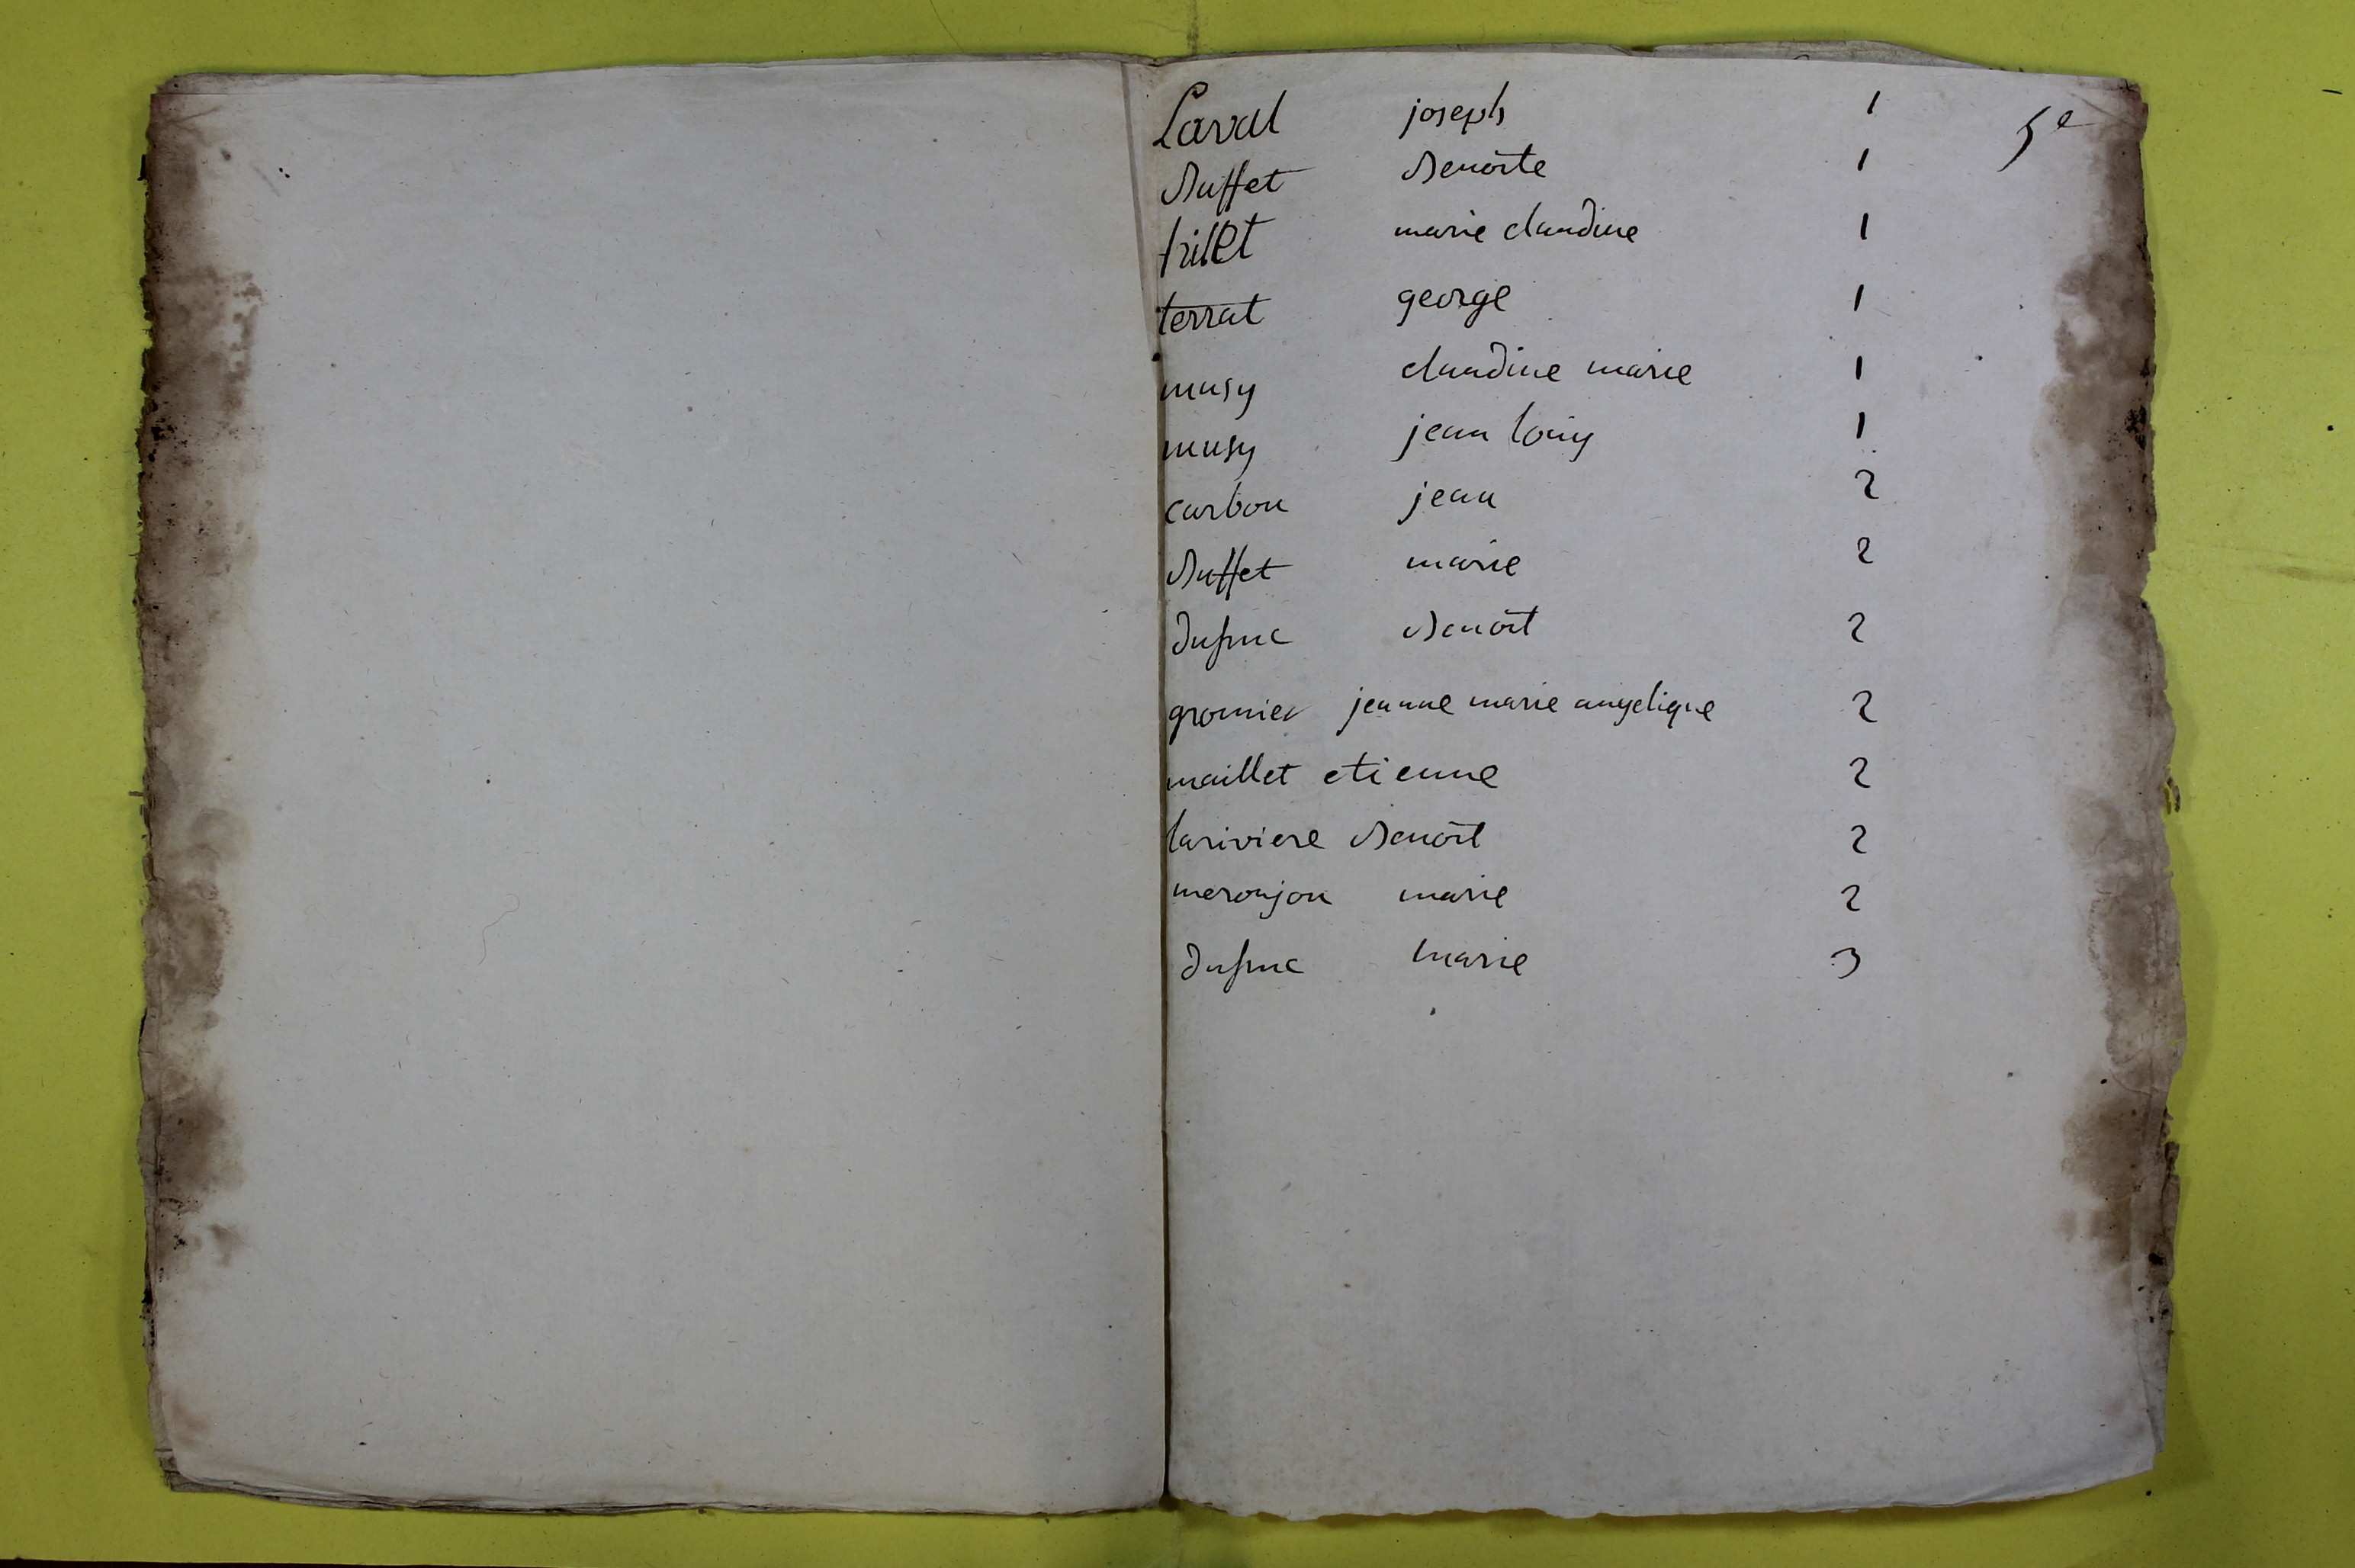 Laval joseph 1 5e
Buffet Benoîte 1
trillet marie claudine 1
terrat george 1
musy claudine marie 1
musy jean louis 1
carbon jean 2
Buffet marie 2
dupuc Benoît 2
gromier jeanne marie angelique 2
maillet etienne 2
lariviere Benoît 2
meronjon marie 2
dupuc marie 3